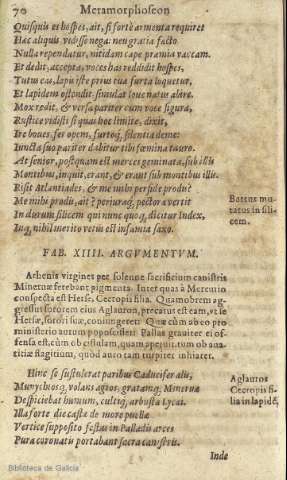 70 Metamorphoseon
Quisquis es hospes, ait, si forte armenta requiret
Hac aliquis vidisse nega: neu gratia facto
Nulla rependatur, nitidam cape præmia vaccam.
Et dedit, accepta, voces has reddidit hospes,
Tutus eas, lapis iste prius tua furta loquetur,
Et lapidem ostendit. simulat Ioue natus abire.
Mox redit, & versa pariter cum voce figura,
Rustice vidisti si quas hoc limite, dixit,
Ire boues: fer opem, furtoq́; silentia deme:
Iuncta suo pariter dabitur tibi fœmina tauro.
At senior, postquam est merces geminata, sub illis
Montibus, inquit, erant, & erant sub montibus illis.
Risit Atlantiades, & me mihi perfide prodis?
Me mihi prodis, ait? periuraq́; pectora vertit
In durum silicem qui nunc quoq́; dicitur Index,
Inq́; nihil merito vetus est infamia saxo.
Battus mu-
tatus in sili-
cem.
FAB. XIIII. ARGVMENTVM.
Athenis virgines per solenne sacrificium canistris
Mineruæ ferebant pigmenta. Inter quas à Mercurio
conspecta est Herse, Cecropis filia. Quamobrem ag-
gressus sororem eius Aglauron, precatus est eam, vt se
Hersæ, sorori suæ, coniungeret. Quæ cùm ab eo pro
ministerio aurum poposcisset: Pallas grauiter ei of-
fensa est, cùm ob cistulam, quam aperuit, tum ob aua-
ritiæ flagitium, quòd auro tam turpiter inhiaret.
Hinc se sustulerat paribus Caducifer alis,
Munychiosq́; volans agros, gratamq́; Mineruæ
Despiciebat humum, cultiq́; arbusta Lycæi.
Illa forte die castæ de more puellæ
Vertice supposito festas in Palladis arces
Pura coronatis portabant sacra canistris.
Aglauros
Cecropis fi-
lia in lapidẽ,
Inde
Biblioteca de Galicia